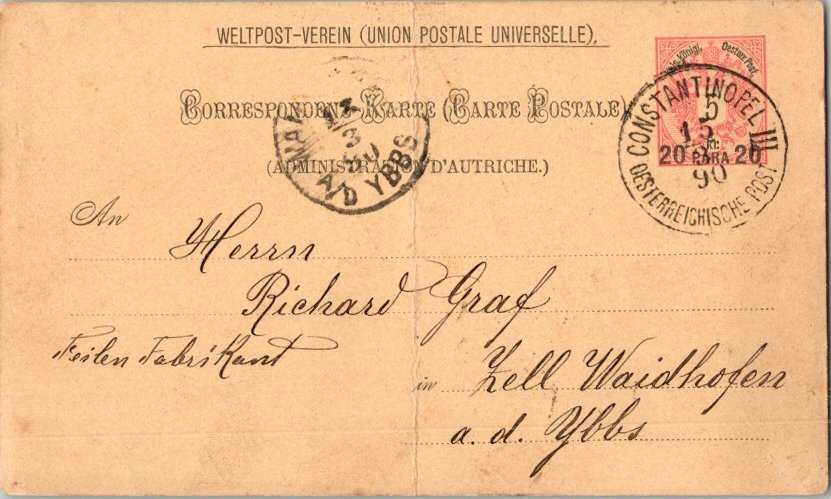 WELTPOST-VEREIN (UNION POSTALE UNIVERSELLE).
Correspondenz-Karte (Carte Postale)
(ADMINISTRATION D'AUTRICHE.)
Königl. Oesterr. Post.
5
kr.
20 PARA 20
CONSTANTINOPEL III
15
90
OESTERREICHISCHE POST
A/D YBBS
An
Herrn
Richard Graf
Feilen Fabrikant
in Zell Waidhofen
a. d. Ybbs